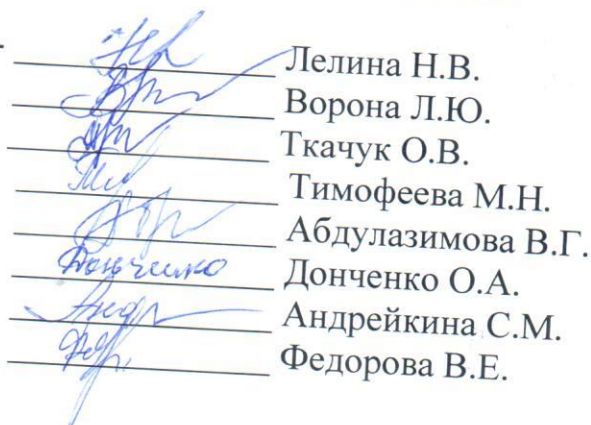 Лелина Н.В.
Ворона Л.Ю.
Ткачук О.В.
Тимофеева М.Н.
Абдулазимова В.Г.
Донченко Донченко О.А.
Андрейкина С.М.
Федорова В.Е.